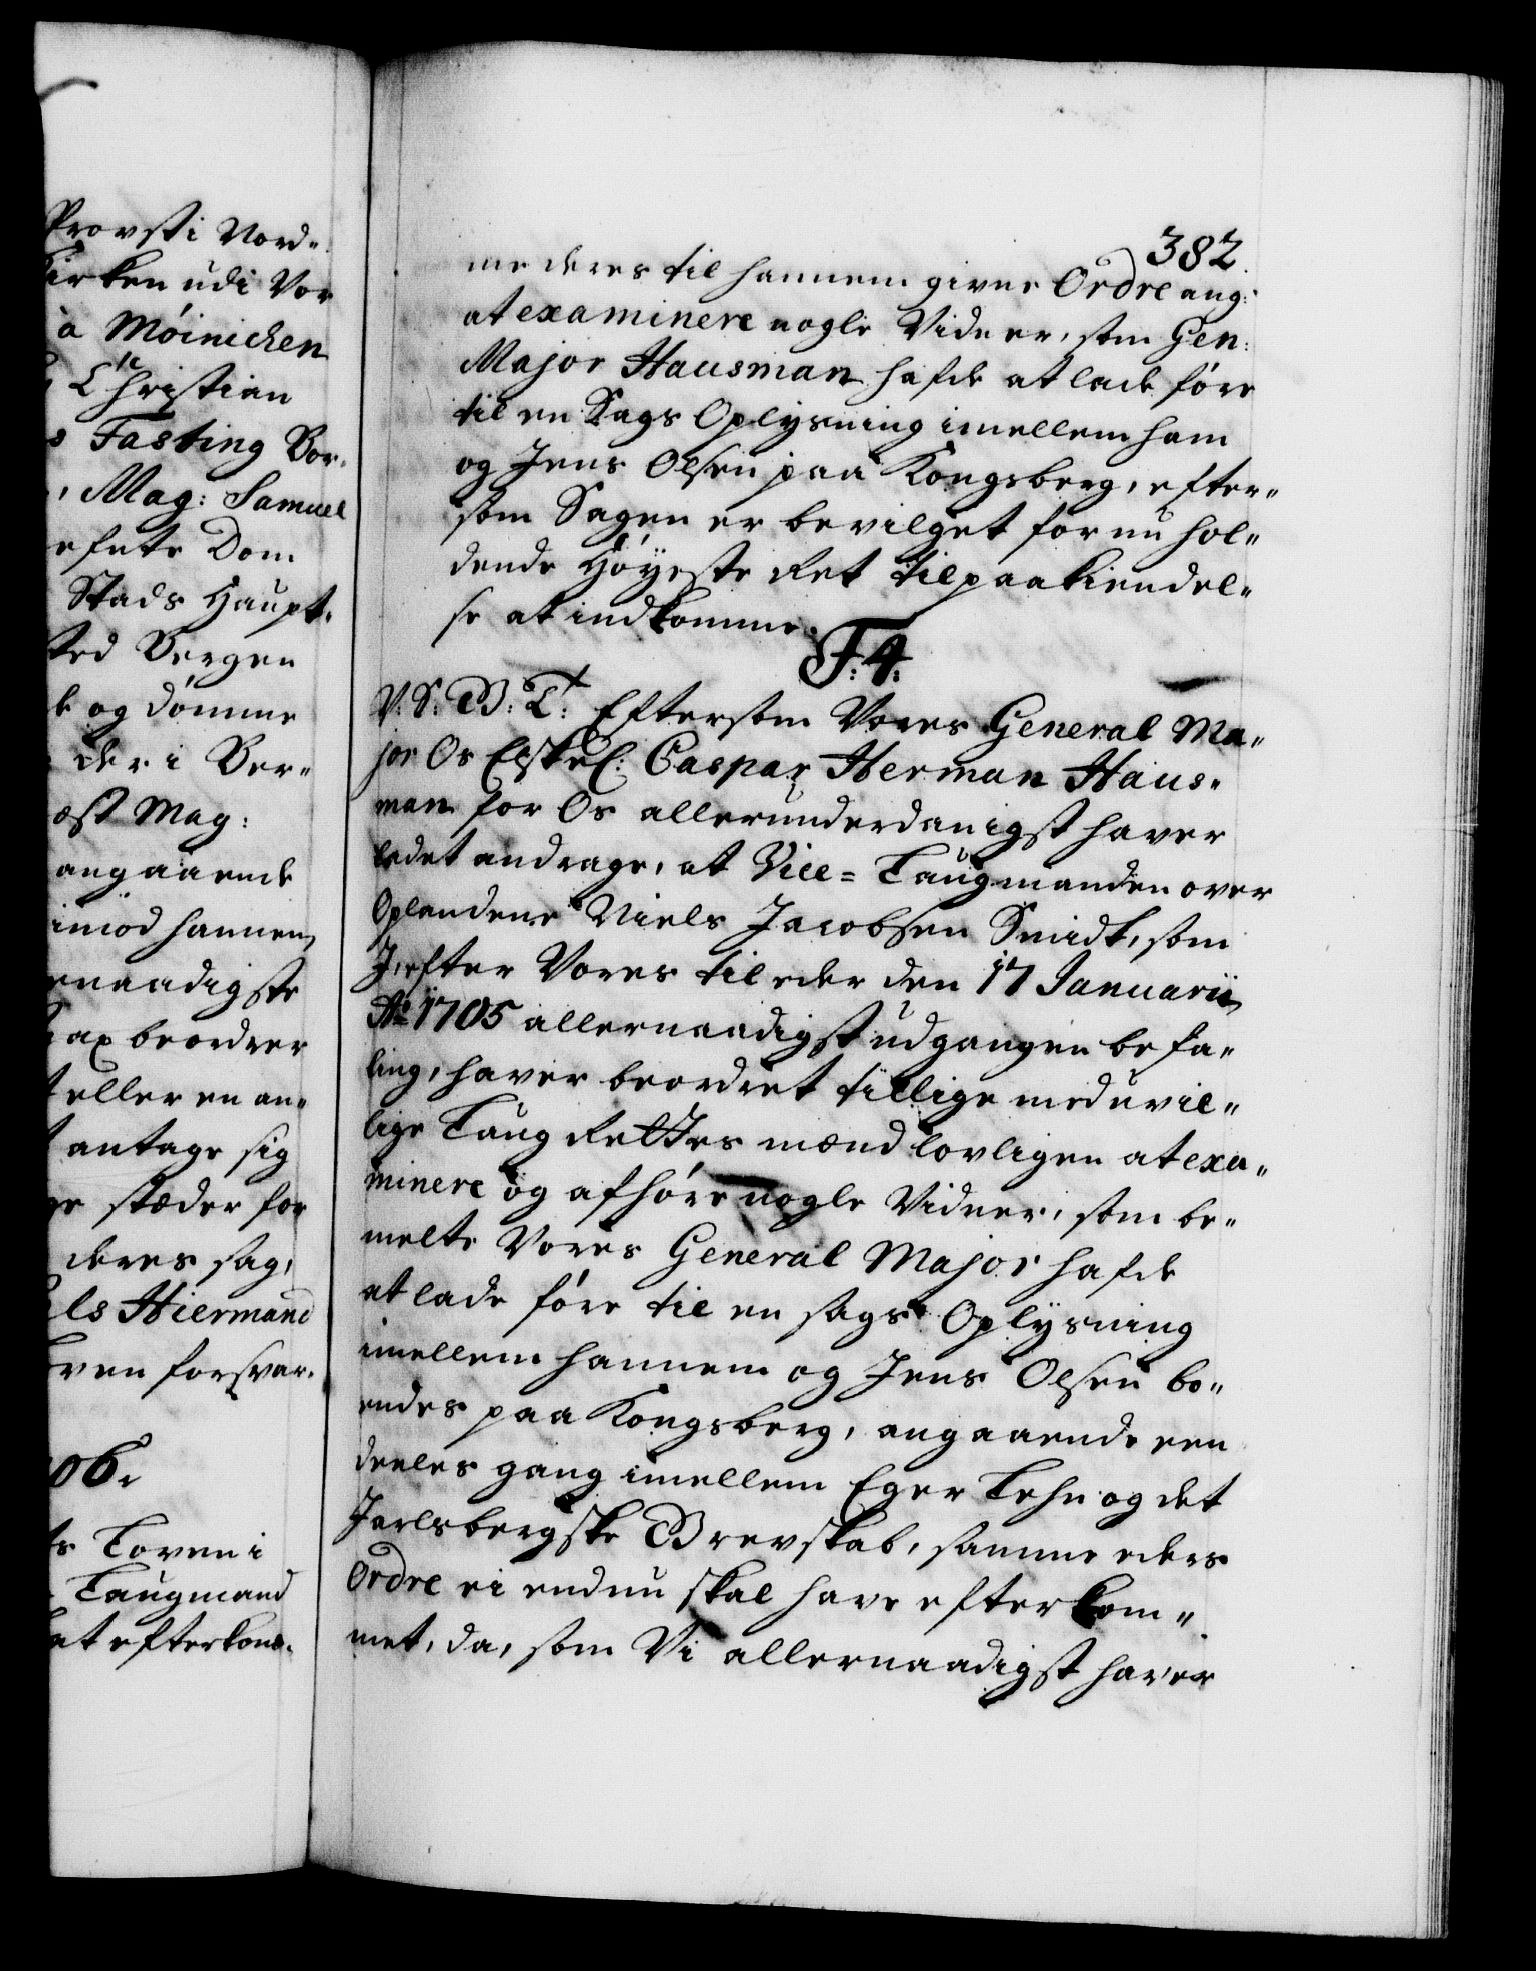 Provst i Nord„
Kirken udi Vor
a Móinichen
Christian
Fasting Bor„
, Mag: Samuel
efnte Dom
Stads Haupt„
sted Bergen
k og dómme
der i Ber„
æst Mag:
angaaende
imod hannem
enaadigste
ax beordrer
eller en an„
antage sig
stæder for
deres sag,
els Hiermand
oven forsvar„
06.
Loven i
Laugmand
at efterkom„
382.
me deres til hannem givne Ordre ang:
at examinere nogle Vidner, som Gen:
Major Hausman hafde at lade fóre
til en Sags Oplysning imellem ham
og Jens Olsen paa Kongsberg, efter„
som Sagen er bevilget for nu hol„
dende Hóÿeste Ret til paakiendel„
se at indkomme.
F: 4:
V: S: G: T: Eftersom Vores General Ma„
jor Os Elskel: Caspar Herman Haus„
man for Os allerunderdanigst haver
ladet andrage, at Vice = Laugmanden over
Oplandene Niels Jacobsen Smidt, som
I, efter Vores til eder den 17 Januarii
Ao 1705 allernaadigst udgangen befa„
ling, haver beordret tillige med uvil„
lige Laug Rettes mænd lovligen at exa„
minere og afhóre nogle Vidner, som be„
melte Vores General Major hafde
at lade fóre til en sags Oplysning
imellem hannem og Jens Olsen bo„
endes paa Kongsberg, angaaende een
deeles gang imellem Eger Lehn og det
Jarlsbergske Grevskab, samme eders
Ordre ei endnu skal have efterkom„
met, da, som Vi allernaadigst haver